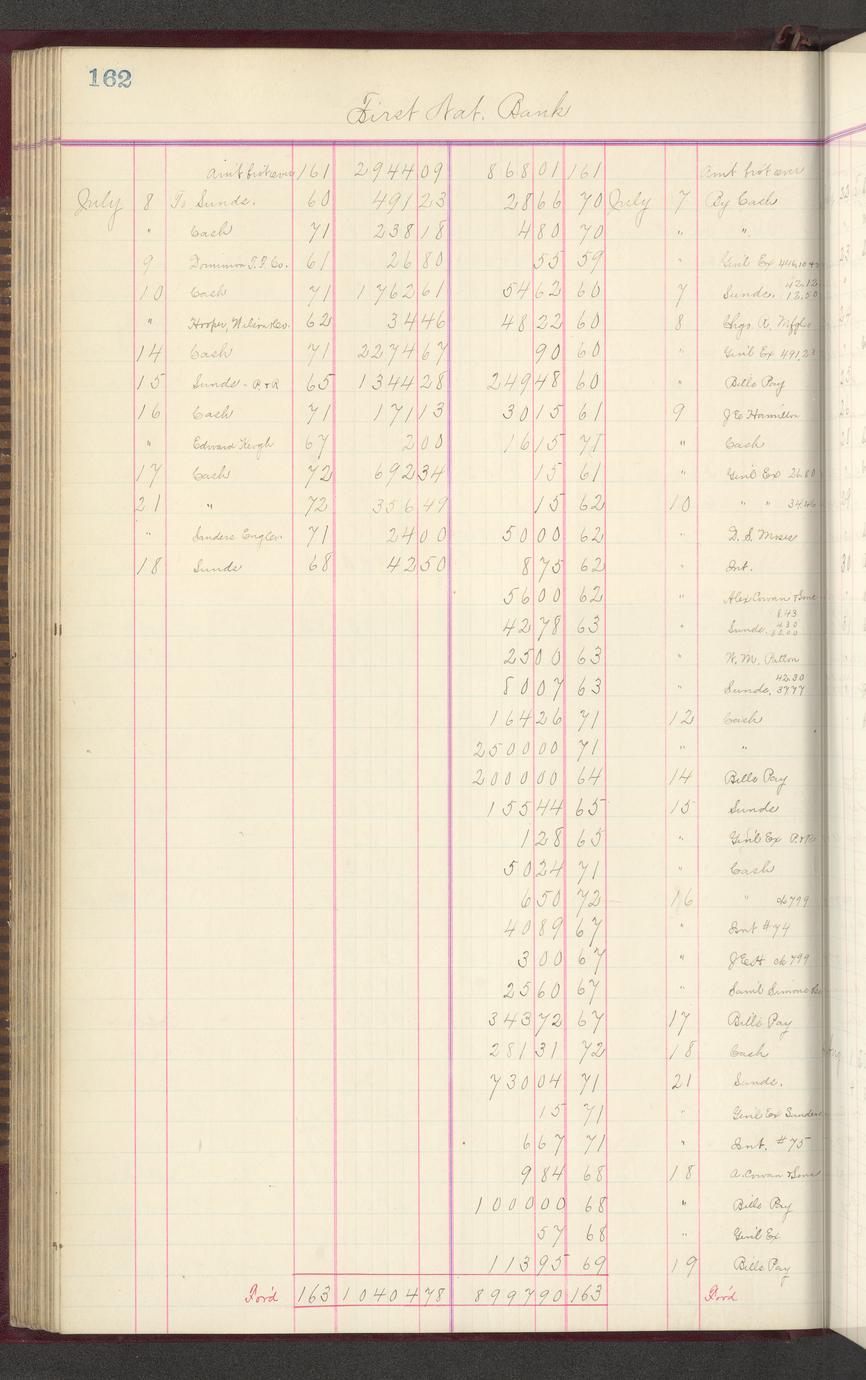 162
First Nat. Bank
am't bro't over 161 2944 09 868 01 161 Amt bro't over
July 8 To Sunds. 60 491 23 28 66 70 July 7 By Cash
" Cash 71 238 18 4 80 70 " "
9 Dominion T.F. Co. 61 26 80 55 59 " Gen'l Ex 446.10
10 Cash 71 1762 61 54 62 60 7 Sunds. 42.12 12.50
" Hooper, Wilson & Co. 62 34 46 48 22 60 8 Chgs. A. Mfgs
14 Cash 71 2274 67 90 60 " Gen'l Ex 491.23
15 Sunds - P & R 65 1344 28 249 48 60 " Bills Pay
16 Cash 71 171 13 30 15 61 9 J E Hamilton
" Edward Keogh 67 2 00 16 15 71 " Cash
17 Cash 72 692 34 15 61 " Gen'l Ex 26.80
21 " 72 356 49 15 62 10 " " 34.46
" Sanders Engler. 71 24 00 50 00 62 " D. S. Moses
18 Sunds 68 42 50 8 75 62 " Int.
56 00 62 " Alex Cowan & Sons
42 78 63 " Sunds. 8.43 4.30
25 00 63 " W. M. Patton
80 07 63 " Sunds. 42.30 37.77
164 26 71 12 Cash
2500 00 71 " "
2000 00 64 14 Bills Pay
155 44 65 15 Sunds
1 28 65 " Gen'l Ex P. & R
50 24 71 " Cash
6 50 72 16 " ck 799
40 89 67 " Int #74
3 00 67 " J E H ck 799
25 60 67 " Sam'l Simons
343 72 67 17 Bills Pay
281 31 72 18 Cash
730 04 71 21 Sunds.
15 71 " Gen'l Ex Sanders
6 67 71 " Int. #75
9 84 68 18 A. Cowan & Sons
1000 00 68 " Bills Pay
57 68 " Gen'l Ex
113 95 69 19 Bills Pay
For'd 163 10404 78 8997 90 163 For'd